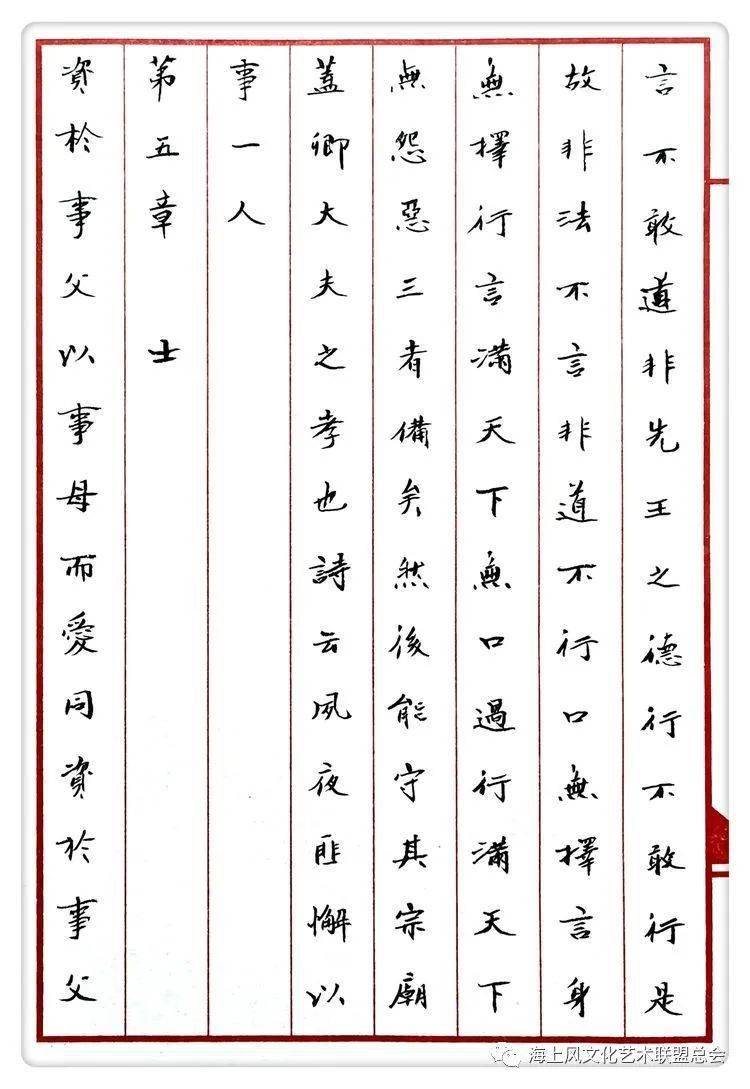 言不敢道非先王之德行不敢行是
故非法不言非道不行口無擇言身
無擇行言滿天下無口過行滿天下
無怨惡三者備矣然後能守其宗廟
蓋卿大夫之孝也詩云夙夜匪懈以
事一人
第五章 士
資於事父以事母而愛同資於事父
海上风文化艺术联盟总会